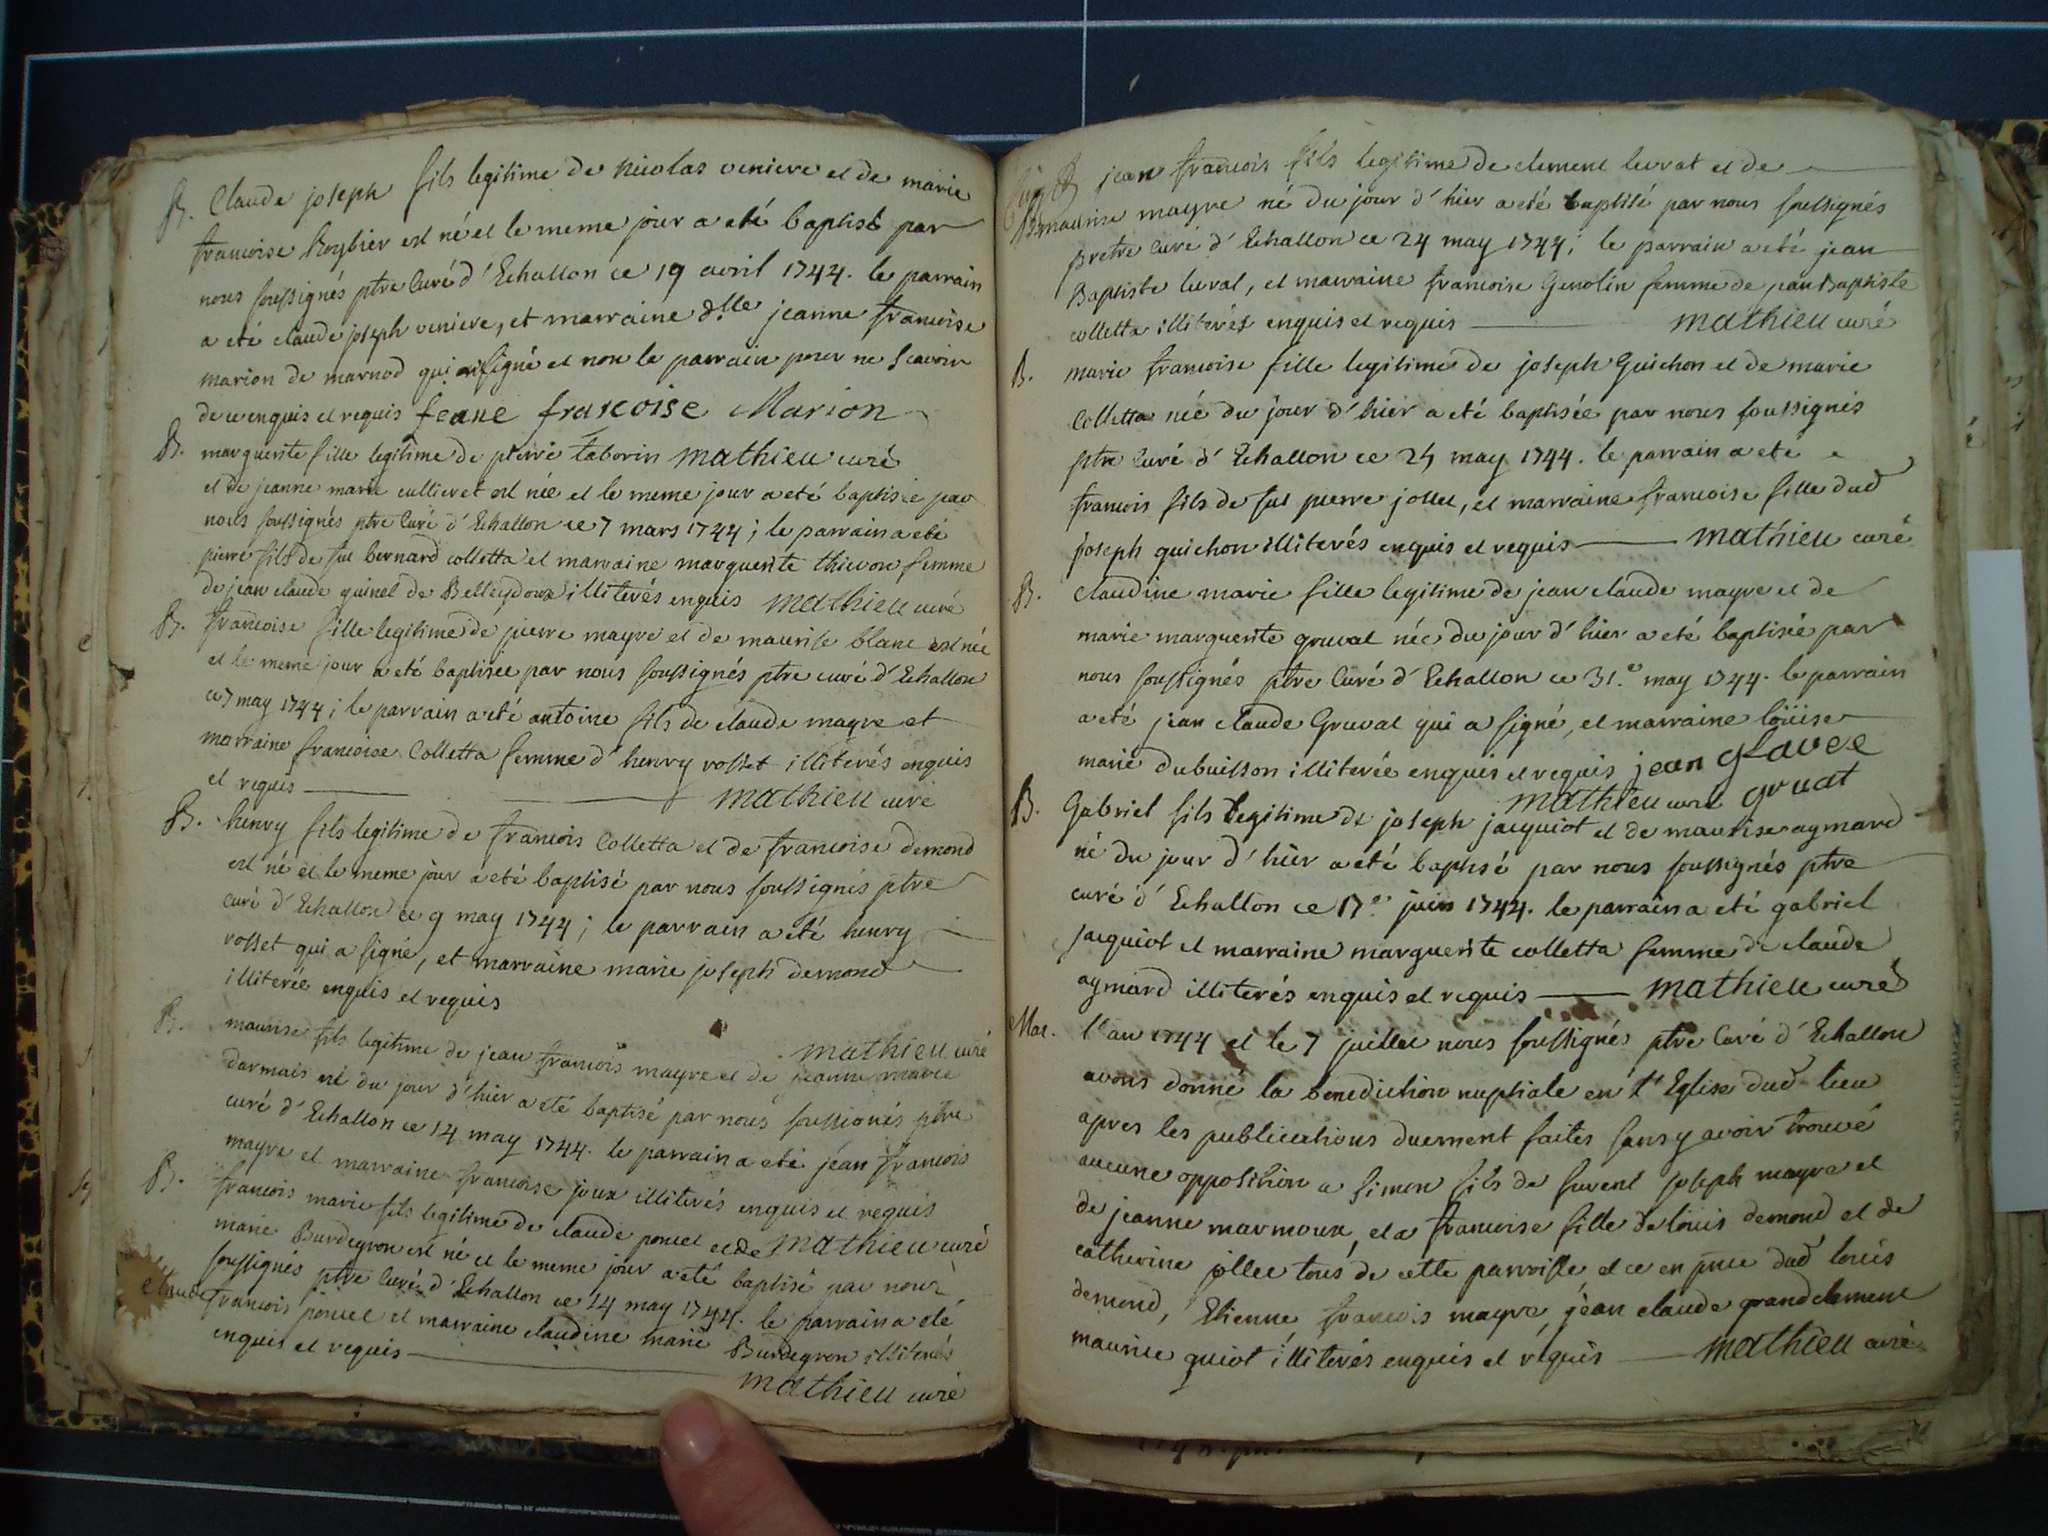 B. Claude joseph fils legitime de Nicolas veniere et de marie
francoise Roybier est né et le meme jour a eté baptisé par
nous soussignés ptre Curé d'Echallon ce 19 avril 1744. le parrain
a eté claude joseph veniere, et marraine dlle jeanne francoise
marion de marnod qui a signé et non le parrain pour ne scavoir
de ce enquis et requis jeane francoise Marion
B. marguerite fille legitime de pierre taborin mathieu curé
et de jeanne marie cullieret est née et le meme jour a eté baptisée par
nous soussignés ptre Curé d'Echallon ce 7 mars 1744; le parrain a eté
pierre fils de fut bernard colletta et marraine marguerite thievon femme
de jean claude guinet de Belleydoux illiterés enquis mathieu curé
B. francoise fille legitime de pierre mayre et de maurise blanc est née
et le meme jour a eté baptisée par nous soussignés ptre curé d'Echallon
ce 7 may 1744; le parrain a eté antoine fils de claude mayre et
marraine francoise Colletta femme d'henry rosset illiterés enquis
et requis mathieu curé
B. henry fils legitime de francois Colletta et de francoise demond
est né et le meme jour a eté baptisé par nous soussignés ptre
Curé d'Echallon ce 9 may 1744; le parrain a eté henry
rosset qui a signé, et marraine marie joseph demond
illiterée enquis et requis
mathieu curé
B. maurise fils legitime de jean francois mayre et de jeanne marie
darmais né du jour d'hier a eté baptisé par nous soussignés ptre
curé d'Echallon ce 14 may 1744. le parrain a eté jean francois
mayre et marraine francoise joux illiterés enquis et requis
B. francois marie fils legitime de claude poncet et de mathieu curé
marie Burdegron est né et le meme jour a eté baptisé par nous
soussignés ptre Curé d'Echallon ce 14 may 1744. le parrain a eté
claude francois poncet et marraine claudine marie Burdegron illiterés
enquis et requis
mathieu curé
B jean francois fils legitime de clement levrat et de
maurise mayre né du jour d'hier a eté baptisé par nous soussignés
Pretre Curé d'Echallon ce 24 may 1744; le parrain a eté jean
Baptiste levrat, et marraine francoise Genolin femme de jean Baptiste
colletta illiterés enquis et requis mathieu curé
B. marie francoise fille legitime de joseph Guichon et de marie
Colletta née du jour d'hier a eté baptisée par nous soussignés
ptre Curé d'Echallon ce 24 may 1744. le parrain a eté
francois fils de fut pierre jollet, et marraine francoise fille dud
joseph guichon illiterés enquis et requis mathieu curé
B. claudine marie fille legitime de jean claude mayre et de
marie marguerite gruvat née du jour d'hier a eté baptisée par
nous soussignés ptre Curé d'Echallon ce 31.e may 1744. le parrain
a eté jean claude Gruvat qui a signé, et marraine loüise
marie dubuisson illiterée enquis et requis jean glavee
mathieu curé gruat
B. Gabriel fils legitime de joseph jacquiot et de maurise aymard
né du jour d'hier a eté baptisé par nous soussignés ptre
curé d'Echallon ce 17e juin 1744. le parrain a eté gabriel
jacquiot et marraine marguerite colletta femme de claude
aymard illiterés enquis et requis mathieu curé
Mar. l'an 1744 et le 7 juillet nous soussignés ptre Curé d'Echallon
avons donné la benediction nuptiale en l'Eglise dud lieu
apres les publications duement faites sans y avoir trouvé
aucune opposition a simon fils de fuvent joseph mayre et
de jeanne marmoux, et a francoise fille de loüis demond et de
catherine jollet tous de cette parroisse et ce en pnce dud loüis
demond, Etienne francois mayre, jean claude grandclement
maurice guiot illiterés enquis et requis mathieu curé